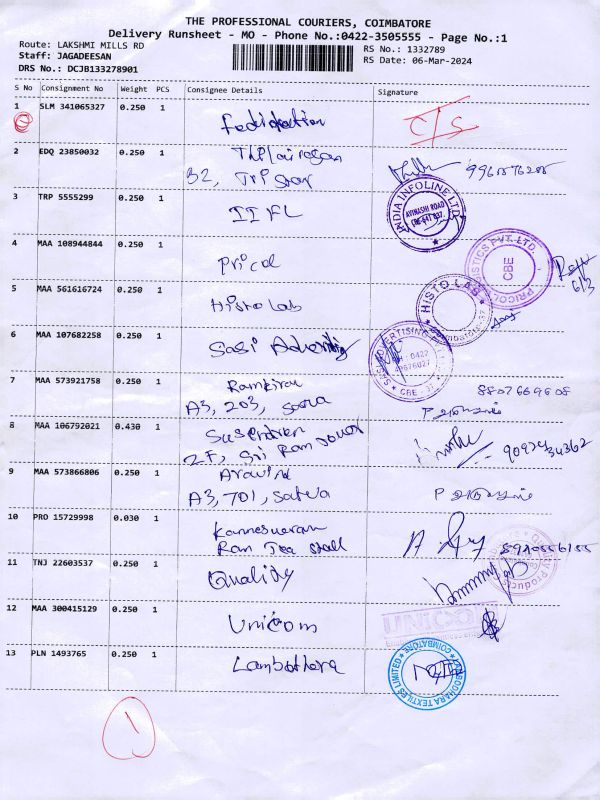 THE PROFESSIONAL COURIERS, COIMBATORE
Delivery Runsheet - MO - Phone No.:0422-3505555 - Page No.:1
Route: LAKSHMI MILLS RD
Staff: JAGADEESAN
DRS No.: DCJB133278901
RS No.: 1332789
RS Date: 06-Mar-2024
S No Consignment No Weight PCS Consignee Details Signature
1 SLM 341065327 0.250 1 C/S
2 EDQ 23850032 0.250 1
B2, Tri Star
3 TRP 5555299 0.250 1 IIFL
INDIA INFOLINE LTD.
AVINASHI ROAD
CBE-641 037.
4 MAA 108944844 0.250 1 Pricol
CBE
6/3
5 MAA 561616724 0.250 1 Histo Lab
HISTO LAB
Coimbatore-37
6 MAA 107682258 0.250 1 Sasi
7 MAA 573921758 0.250 1 Ramkiran
A3, 203,
8 MAA 106792021 0.430 1
2F, Sri Ram
9 MAA 573866806 0.250 1 Aravind
A3, 701,
10 PRO 15729998 0.030 1 Kanneswaran
Ram Tea Stall
11 TNJ 22603537 0.250 1 Quality
12 MAA 300415129 0.250 1 Unicom
13 PLN 1493765 0.250 1 Lambothara
TEXTILES LIMITED
COIMBATORE
1